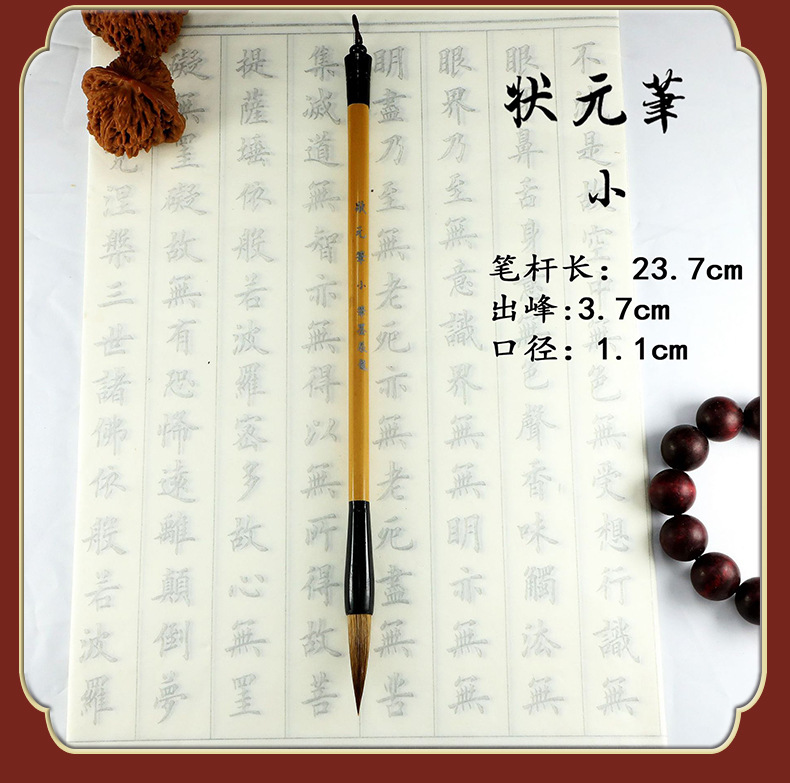 状元筆
小
笔杆长：23.7cm
出峰:3.7cm
口径：1.1cm
狀元筆 小
不是故空中無色無受想行識無
眼鼻舌身色聲香味觸法無
眼界乃至無意識界無無明亦無無
明盡乃至無老死亦無老死盡無苦
集滅道無智亦無得以無所得故菩
提薩埵依般若波羅密多故心無罣
礙無罣礙故無有恐怖遠離顛倒夢
涅槃三世諸佛依般若波羅